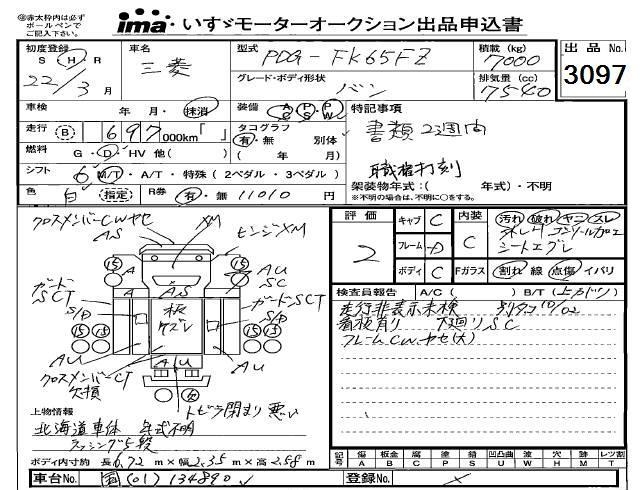 ※赤太枠内は必ず
ボールペンで
ご記入下さい。
ima いすゞモーターオークション出品申込書
初度登録 車名 型式 PDG-FK65FZ 積載 (kg) 7000 出品 No.
S H R 三菱 グレード・ボディ形状 バン 排気量 (cc) 7540 3097
22/3月
車検 年・月・抹消 装備 A/C P/S P/W 特記事項
走行 B 697,000km「 」 タコグラフ 有・無 別体 書類2週間
燃料 G・D・HV 他( ) ( 年 月)
シフト 6 M/T・A/T・特殊(2ペダル・3ペダル) 職権打刻
架装物年式:( 年式)・不明
色 白 指定 R券 有・無 11010 円 ※不明の場合は、不明に○をする。
クロスメンバーCWヤセ XM ヒンジXM
AS
15 A AU 15
SC
ガードSCT A AS A ガードSCT
S/D 板ケズレ S/D
15 15 15 15
AU AU AU
クロスメンバーCT
欠損
トビラ閉まり悪い
上物情報
北海道車体 年式不明
ラッシング5段
ボディ内寸約 長 6.72 m×幅 2.35 m×高 2.58 m
評価 2
キャブ C 内装 C 汚れ 破れ ヤニ スレ
フレーム D
シートエグレ
ボディ C Fガラス 割れ 線 点傷 イバリ
検査員報告 A/C( ) B/T(上カドワ)
走行非表示未検 10/02
看板有り 下廻りSC
フレームCWヤセ(大)
記号 傷 A 板金 B 腐 C 塗 P 錆 S 凹凸曲 U 波 W 穴 H 跡 M レツ割 T
車台No. 国(01)134890 登録No. ×